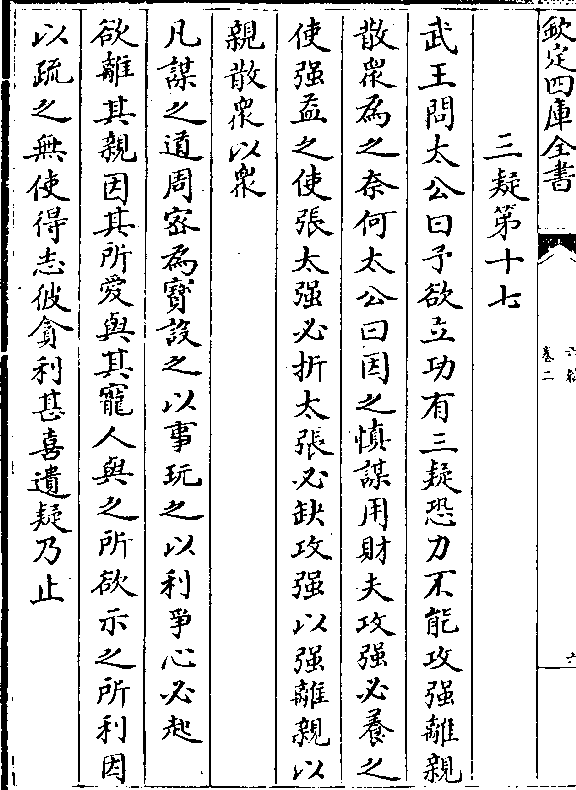 欽定四庫全書
卷二
三疑第十七
武王問太公曰予欲立功有三疑恐力不能攻强離親
散衆為之奈何太公曰因之慎謀用財夫攻强必養之
使强益之使張太强必折太張必缺攻强以强離親以
親散衆以衆
凡謀之道周宻為寳設之以事玩之以利爭心必起
欲離其親因其所愛與其寵人與之所欲示之所利因
以疏之無使得志彼貪利甚喜遺疑乃止